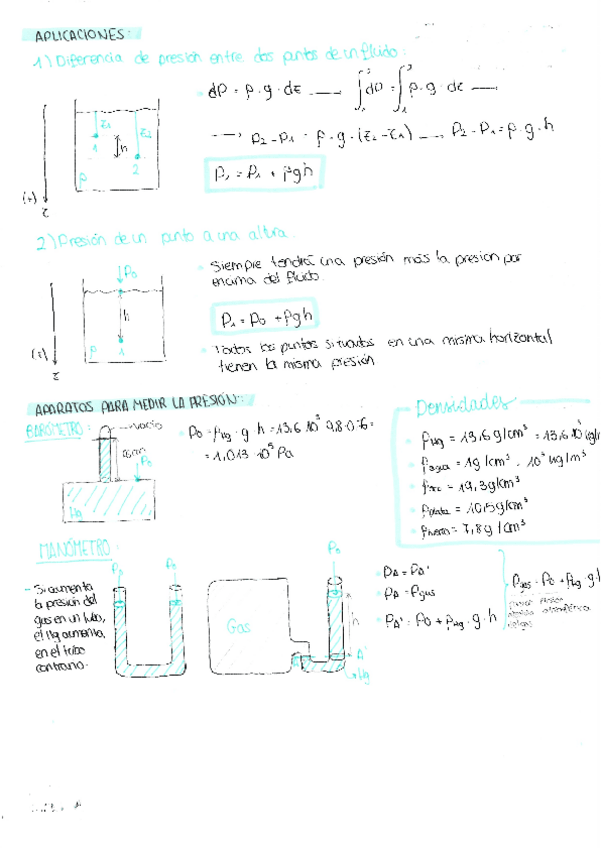 APLICACIONES:
1) Diferencia de presión entre dos puntos de un fluido:
dP = ρ · g · dz → ∫dP = ∫ρ · g · dz →
→ P2 - P1 = ρ · g · (z2 - z1) → P2 - P1 = ρ · g · h
P2 = P1 + ρgh
z1
z2
1
h
2
ρ
(+)
z
2) Presión de un punto a una altura.
P0
Siempre tendrá una presión más la presion por
encima del fluido.
h
P1 = P0 + ρgh
1
ρ
(+)
z
Todos los puntos situados en una misma horizontal
tienen la misma presión
APARATOS PARA MEDIR LA PRESIÓN:
BARÓMETRO:
vacío
P0
Hg
P0 = ρHg · g · h = 13,6·10³·9,8·0,76=
= 1,013·10⁵ Pa
Densidades
ρHg = 13,6 g/cm³ = 13,6·10³
ρagua = 1g/cm³ = 10³ kg/m³
= 19,3g/cm³
ρplata = 10,5g/cm³
= 7,8g/cm³
MANÓMETRO:
Si aumenta
la presión del
gas en un tubo,
el Hg aumenta,
en el tubo
contrario.
P0
P0
P0
Gas
h
A
A'
Hg
PA = PA'
PA = Pgas
PA' = P0 + ρHg · g · h
Pgas = P0 + ρHg · g
atmosférica